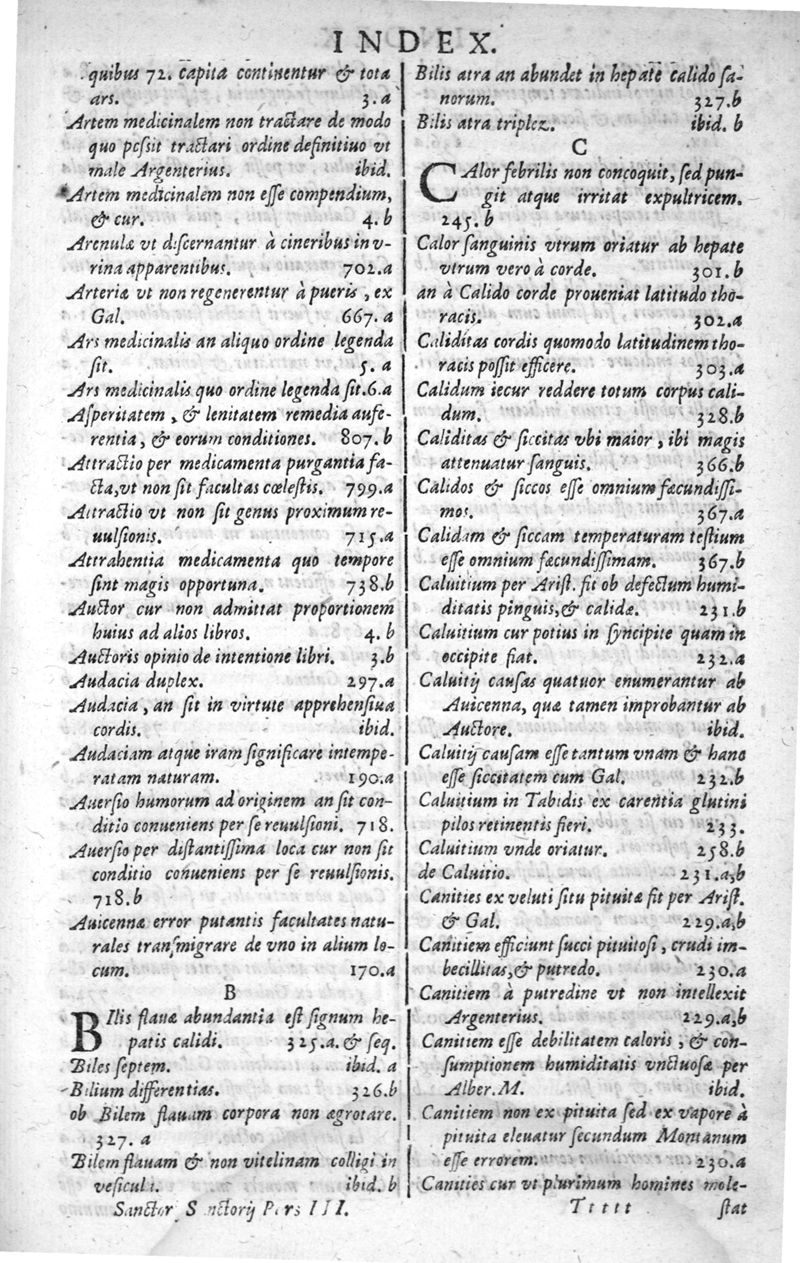 INDEX.
quibus 72. capita continentur & tota
ars. 3.a
Artem medicinalem non tractare de modo
quo possit tractari ordine definitiuo vt
male Argenterius. ibid.
Artem medicinalem non esse compendium,
& cur. 4.b
Arenulæ vt discernantur à cineribus in v-
rina apparentibus. 702.a
Arteriæ vt non regenerentur à pueris, ex
Gal. 667.a
Ars medicinalis an aliquo ordine legenda
sit. 5.a
Ars medicinalis quo ordine legenda sit. 6.a
Asperitatem, & lenitatem remedia aufe-
rentia, & eorum conditiones. 807.b
Attractio per medicamenta purgantia fa-
cta, vt non sit facultas cœlestis. 799.a
Attractio vt non sit genus proximum re-
uulsionis. 715.a
Attrahentia medicamenta quo tempore
sint magis opportuna. 738.b
Auctor cur non admittat proportionem
huius ad alios libros. 4.b
Auctoris opinio de intentione libri. 3.b
Audacia duplex. 297.a
Audacia, an sit in virtute apprehensiua
cordis. ibid.
Audaciam atque iram significare intempe-
ratam naturam. 190.a
Auersio humorum ad originem an sit con-
ditio conueniens per se reuulsioni. 718.
Auersio per distantissima loca cur non sit
conditio conueniens per se reuulsionis.
718.b
Auicennæ error putantis facultates natu-
rales transmigrare de vno in alium lo-
cum. 170.a
B
BIlis flauæ abundantia est signum he-
patis calidi. 325.a. & seq.
Biles septem. ibid. a
Bilium differentias. 326.b
ob Bilem flauam corpora non ægrotare.
327. a
Bilem flauam & non vitelinam colligi in
ibid. b
Pars III.
Bilis atra an abundet in hepate calido sa-
norum. 327.b
Bilis atra triplez. ibid. b
C
CAlor febrilis non concoquit, sed pun-
git atque irritat expultricem.
245. b
Calor sanguinis vtrum oriatur ab hepate
vtrum vero à corde. 301.b
an à Calido corde proueniat latitudo tho-
racis. 302.a
Caliditas cordis quomodo latitudinem tho-
racis possit efficere. 303.a
Calidum iecur reddere totum corpus cali-
dum. 328.b
Caliditas & siccitas vbi maior, ibi magis
attenuatur sanguis. 366.b
Calidos & siccos esse omnium fæcundissi-
mos. 367.a
Calidam & siccam temperaturam testium
esse omnium fæcundissimam. 367.b
Caluitium per Arist. fit ob defectum humi-
ditatis pinguis, & calidæ. 231.b
Caluitium cur potius in syncipite quam in
occipite fiat. 232.a
Caluitij causas quatuor enumerantur ab
Auicenna, quæ tamen improbantur ab
Auctore. ibid.
Caluitij causam esse tantum vnam & hanc
esse siccitatem cum Gal. 232.b
Caluitium in Tabidis ex carentia glutini
pilos retinentis fieri. 233.
Caluitium vnde oriatur. 258.b
de Caluitio. 231.a,b
Canities ex veluti situ pituitæ fit per Arist.
& Gal. 229.a,b
Canitiem efficiunt succi pituitosi, crudi im-
becillitas, & putredo. 230.a
Canitiem à putredine vt non intellexit
Argenterius. 229.a,b
Canitiem esse debilitatem caloris, & con-
sumptionem humiditatis vnctuosæ per
Alber. M. ibid.
Canitiem non ex pituita sed ex vapore à
pituita eleuatur secundum Montanum
esse errorem. 230.a
Canities cur vt plurimum homines mole-
Ttttt stat